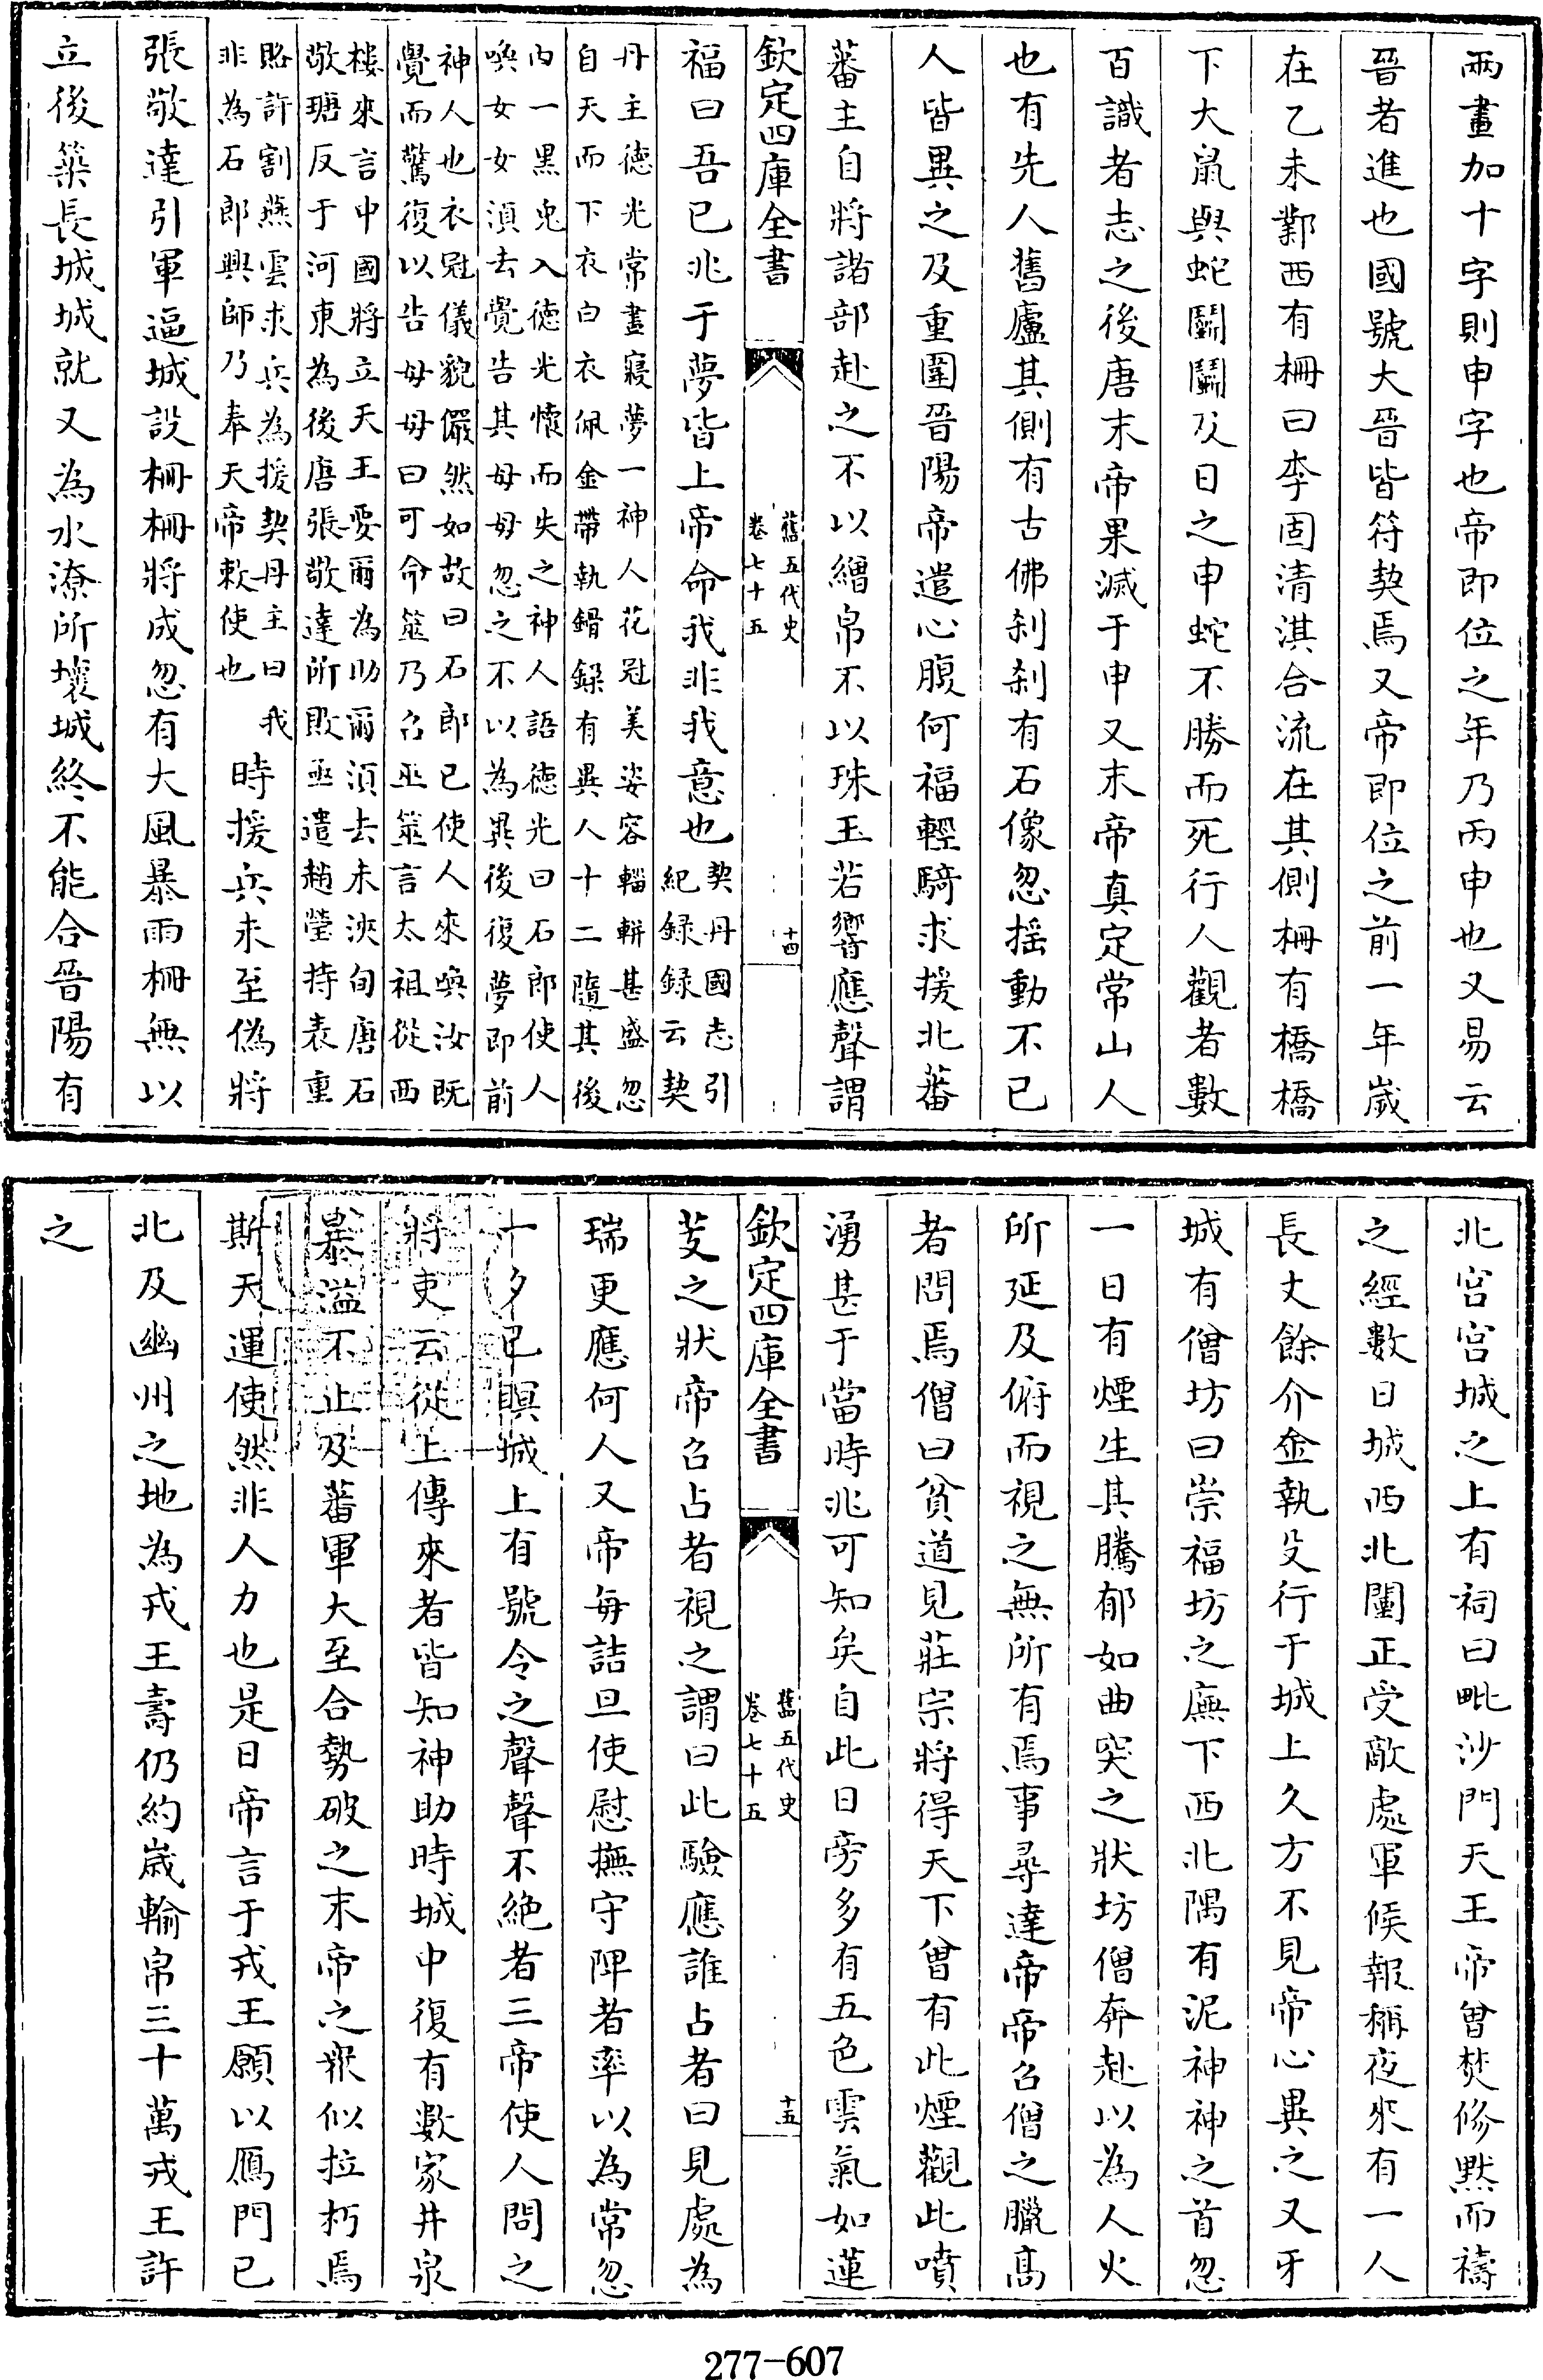 兩畫加十字則申字也帝即位之年乃丙申也又易云
晉者進也國號大晉皆符契焉又帝即位之前一年歲
在乙未鄴西有柵曰李固清淇合流在其側柵有橋橋
下大鼠與蛇鬭鬭及日之申蛇不勝而死行人觀者數
百識者志之後唐末帝果滅于申又末帝真定常山人
也有先人舊廬其側有古佛刹刹有石像忽摇動不已
人皆異之及重圍晉陽帝遣心腹何福輕騎求援北蕃
蕃主自將諸部赴之不以繒帛不以珠玉若響應聲謂
欽定四庫全書
舊五代史
卷七十五
十四
福曰吾已兆于夢皆上帝命我非我意也契丹國志引
紀録録云契
丹主徳光常晝寢夢一神人花冠美姿容輜軿甚盛忽
自天而下衣白衣佩金帶執錯鍨有異人十二隨其後
内一黑兎入徳光懷而失之神人語徳光曰石郎使人
喚女女湏去覺告其母母忽之不以為異後復夢即前
神人也衣冠儀貌儼然如故曰石郎已使人來喚汝既
覺而驚復以告母母曰可命筮乃召巫筮言太祖從西
樓來言中國將立天王要爾為助爾湏去未浹旬唐石
敬瑭反于河東為後唐張敬達所敗亟遣趙瑩持表重
賂許割燕雲求兵為援契丹主曰我
非為石郎興師乃奉天帝敕使也
時援兵未至偽將
張敬達引軍逼城設柵柵將成忽有大風暴雨柵無以
立後築長城城就又為水潦所壞城終不能合晉陽有
北宫宫城之上有祠曰毗沙門天王帝曽焚修默而禱
之經數日城西北闉正受敵處軍候報稱夜來有一人
長丈餘介金執殳行于城上久方不見帝心異之又牙
城有僧坊曰崇福坊之廡下西北隅有泥神神之首忽
一日有煙生其騰郁如曲突之狀坊僧奔赴以為人火
所延及俯而視之無所有焉事尋達帝帝召僧之臘髙
者問焉僧曰貧道見莊宗將得天下曽有此煙觀此噴
湧甚于當時兆可知矣自此日旁多有五色雲氣如蓮
欽定四庫全書
舊五代史
卷七十五
十五
芰之狀帝召占者視之謂曰此驗應誰占者曰見處為
瑞更應何人又帝每詰旦使慰撫守陴者率以為常忽
一夕已瞑城上有號令之聲聲不絶者三帝使人問之
將吏云從上傳來者皆知神助時城中復有數家井泉
暴溢不止及蕃軍大至合勢破之末帝之衆似拉朽焉
斯天運使然非人力也是日帝言于戎王願以鴈門已
北及幽州之地為戎王壽仍約歲輸帛三十萬戎王許
之
277-607